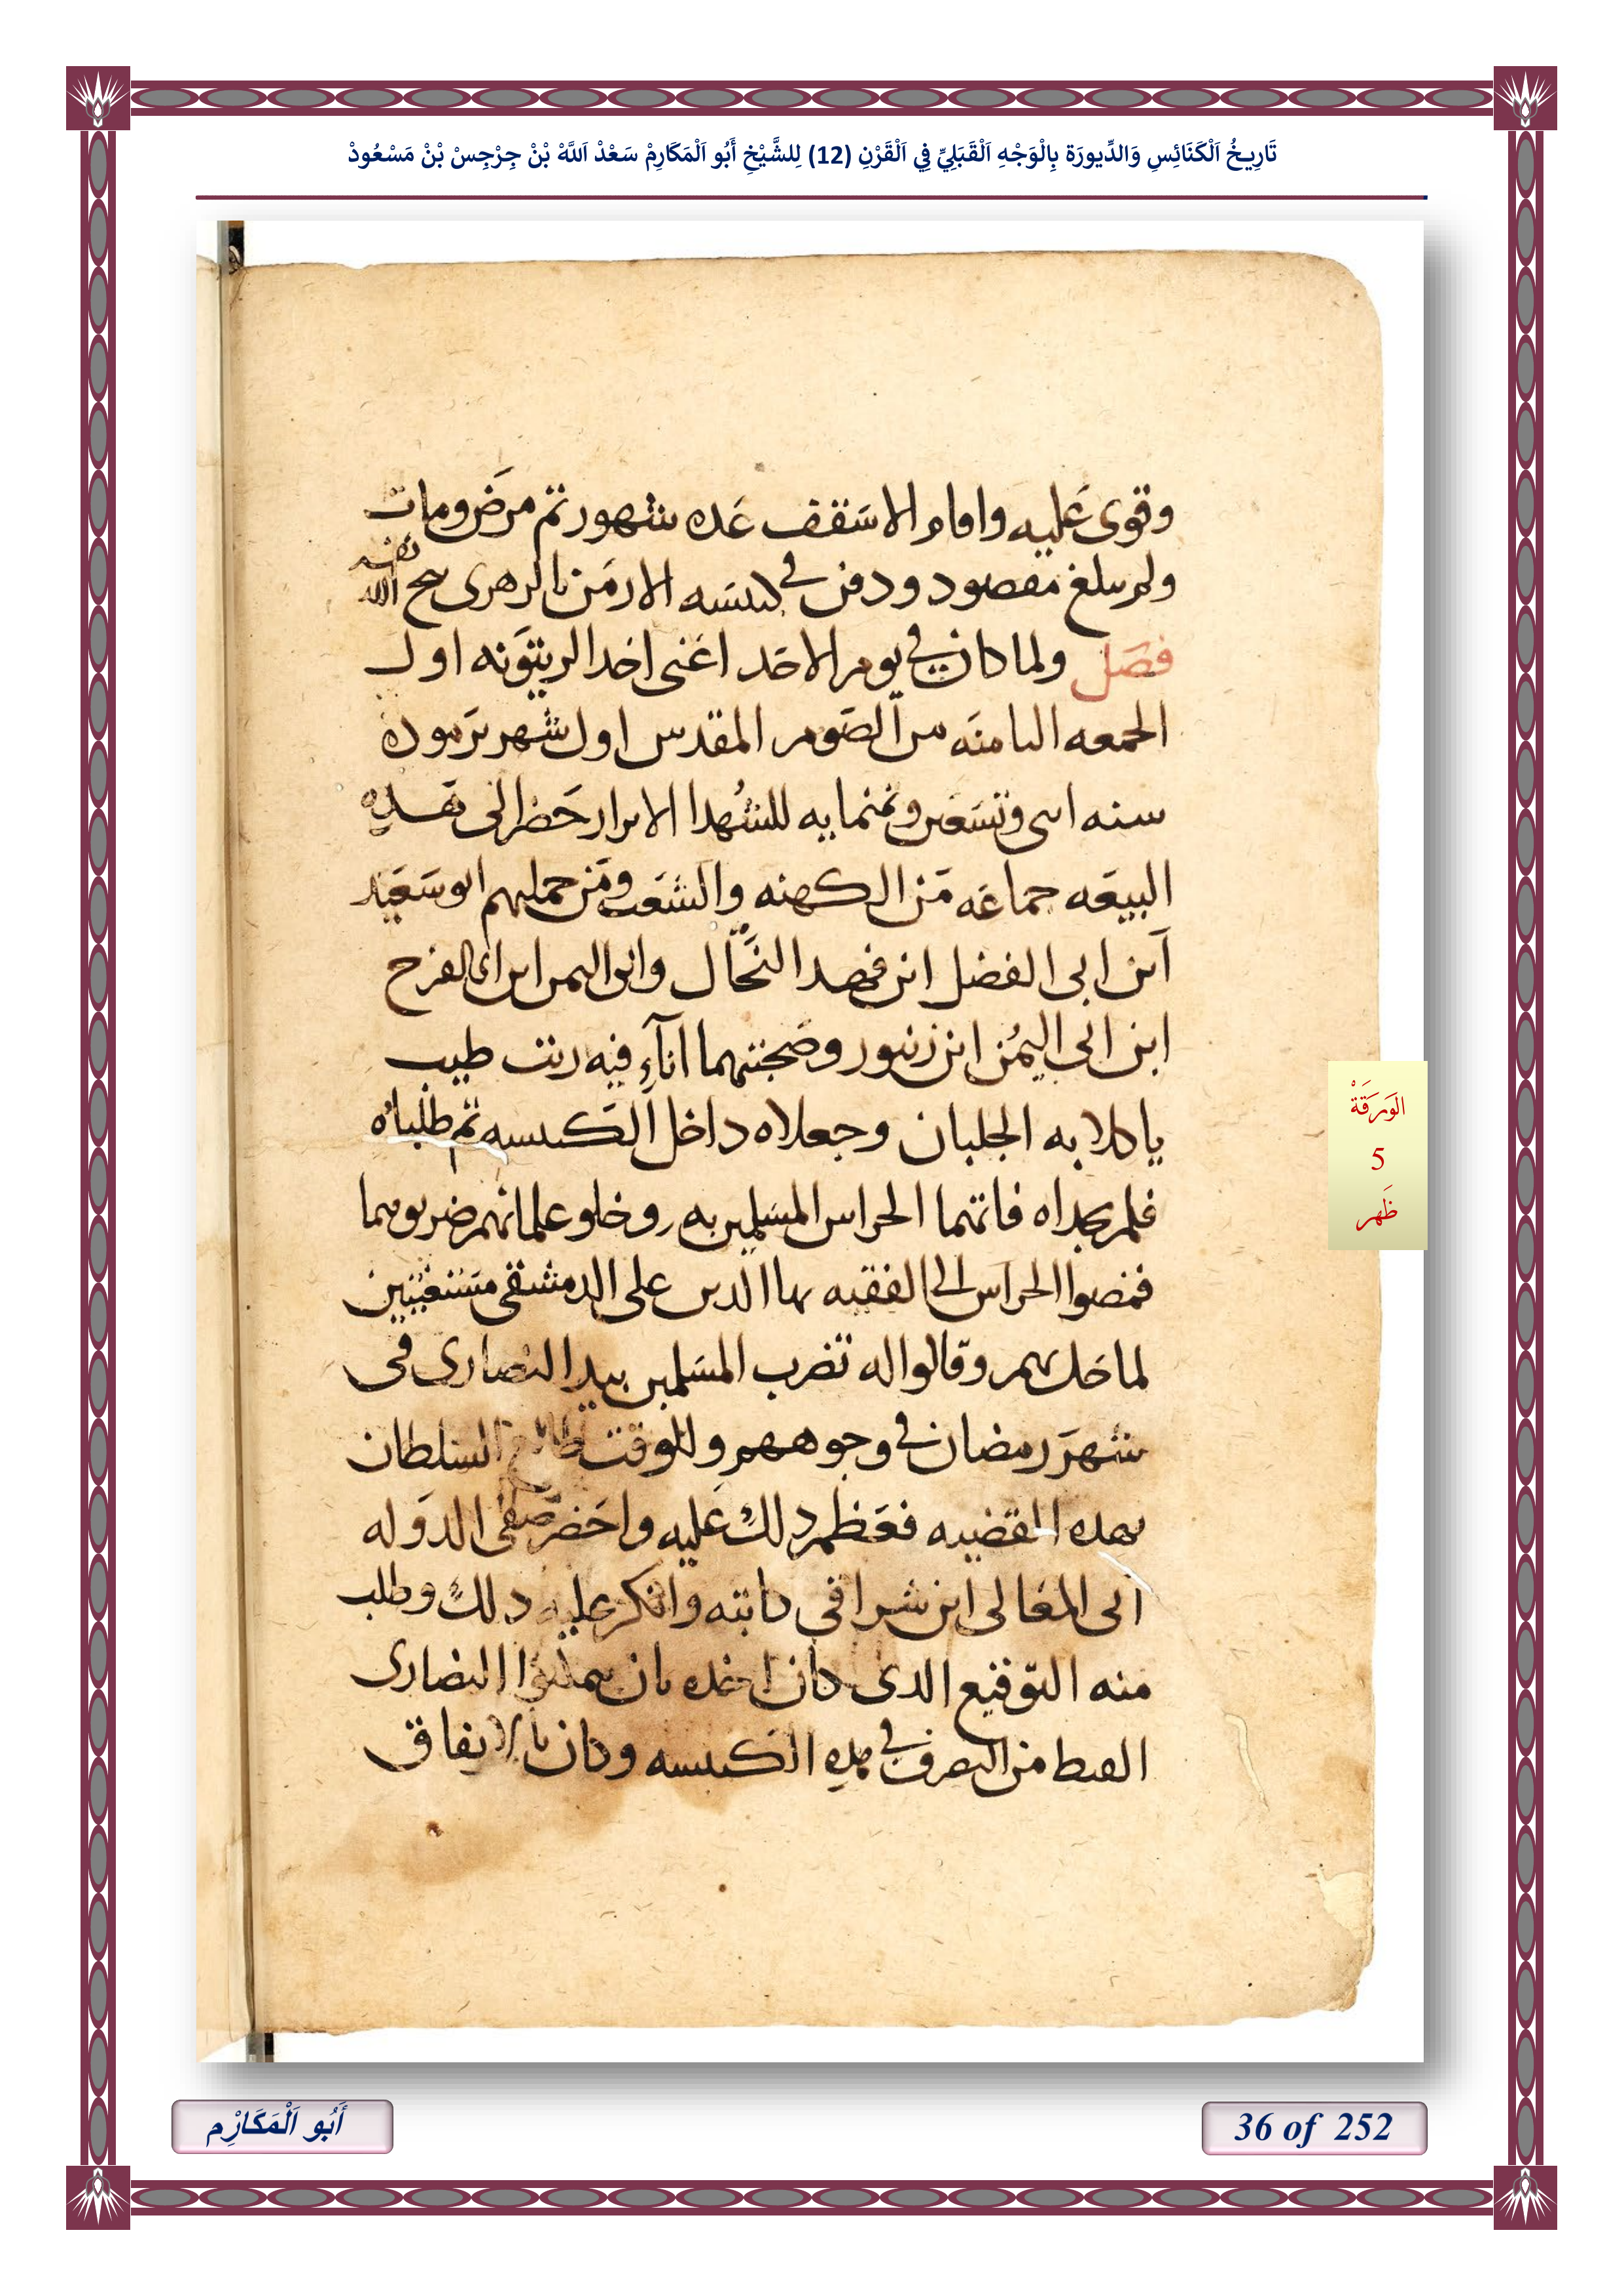 تَارِيخُ اَلْكَنَائِسِ وَالدِّيورَة بِالْوَجْهِ اَلْقَبَلِيِّ فِي اَلْقَرْنِ (12) لِلشَّيْخِ أَبُو اَلْمَكَارِمْ سَعْدْ اَللَّهْ بْنْ جِرْجِسْ بْنْ مَسْعُودْ
وقوى عليه واقام الاسقف عده شهور ثم مرض ومات
ولم يبلغ مقصود ودفن في كنيسه الارمن بالزهرى نيح الله نفسه
فصل ولما كان في يوم الاحد اعنى احد الزيتونه اول
الجمعه الثامنه من الصوم المقدس اول شهر برموده
سنه اثنى وتسعين وثمنمايه للشهدا الابرار حضر الى هده
البيعه جماعه من الكهنه والشعب ومن جملهم ابو سعيد
ابن ابى الفضل ابن فهد النحال وابو اليمن ابن ابى الفرج
ابن ابى اليمن ابن زنبور وصحبتهما اناء فيه زيت طيب
ياكلا به الجلبان وجعلاه داخل الكنيسه ثم طلباه
فلم يجداه فاتهما الحراس المسلمين به وخلو غلمانهم ضربوهما
فمضوا الحراس الى الفقيه بها الدين على الدمشقى مستغيثين
لما حل بهم وقالوا له تضرب المسلمين بيد النصارى فى
شهر رمضان في وجوههم وللوقت طالع السلطان
بهده القضيه فعظم دلك عليه واحضر صفى الدوله
ابى المعالى ابن شرافى كاتبه وانكر عليه دلك وطلب
منه التوقيع الدى كان اخده بان يمكنوا النصارى
القبط من التصرف في هده الكنيسه وكان بالاتفاق
الوَرَقَةْ
5
ظَهر
أَبُو اَلْمَكَارِْم
36 of 252